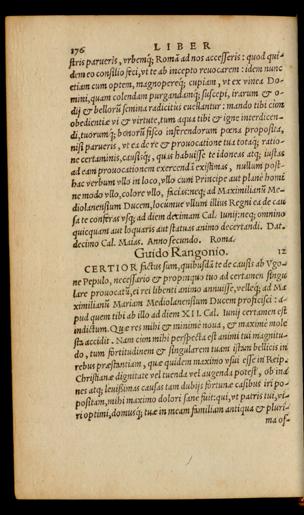 176 LIBER
stris parueris, vrbemq́; Romā ad nos accesseris: quod qui-
dem eo consilio feci, vt te ab incepto reuocarem: idem nunc
etiam cum optem, magnopereq́; cupiam, vt ex vinea Do-
mini, quam colendam purgandamq́; suscepi, irarum & o-
dij & bellorū semina radicitus euellantur: mando tibi cum
obedientiæ vi & virtute, tum aqua tibi & igne interdicen-
di, tuorumq́; bonorū fisco inferendorum pœna proposita,
nisi parueris, vt ea de re & prouocatione tua totaq́; ratio-
ne certaminis, causisq́;, quas habuisse te idoneas atq; iustas
ad eam prouocationem exercendā existimas, nullum post-
hac verbum vllo in loco, vllo cum Principe aut plane homi
ne modo vllo, colore vllo, facias: neq; ad Maximilianū Me-
diolanensium Ducem, locumue vllum illius Regni ea de cau
sa te conferas vsq; ad diem decimam Cal. Iunij: neq; omnino
quicquam aut loquaris aut statuas animo decertandi. Dat.
decimo Cal. Maias. Anno secundo. Roma.
Guido Rangonio. 12
CERTIOR factus sum, quibusdā te de causis ab Vgo-
ne Pepulo, necessario & propinquo tuo ad certamen singu
lare prouocatū, ei rei libenti animo annuisse, velleq́; ad Ma
ximilianū Mariam Mediolanensium Ducem proficisci: a-
pud quem tibi ab illo ad diem XII. Cal. Iunij certamen est
indictum. Quæ res mihi & minime noua, & maxime mole
sta accidit. Nam cum mihi perspecta est animi tui magnitu-
do, tum fortitudinem & singularem tuam istam bellicis in
rebus præstantiam, quæ quidem maximo vsui esse in Reip.
Christianæ dignitate vel tuenda vel augenda potest, ob ina
nes atq; leuissimas causas tam dubijs fortunæ casibus iri po-
positam, mihi maximo dolori sane fuit: qui, vt patris tui, vi-
ri optimi, domusq́; tuæ in meam familiam antiqua & pluri-
ma of-